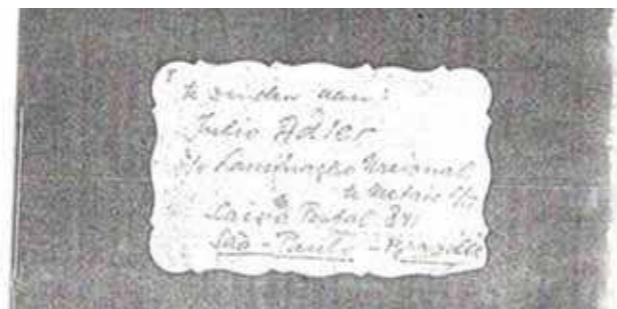 te zenden aan:
Julio Adler
c/o Laminação Nacional
de Metais S/A
Caixa Postal 841
São-Paulo - Brasilië